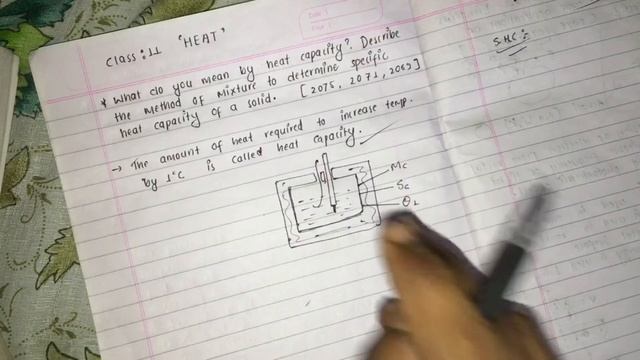 Class: 11 'HEAT'
S.H.C :
* What do you mean by heat capacity? Describe
the method of mixture to determine specific
heat capacity of a solid. [2075, 2071, 2069]
→ The amount of heat required to increase temp.
by 1°C is called heat capacity.
Mc
Sc
θ1